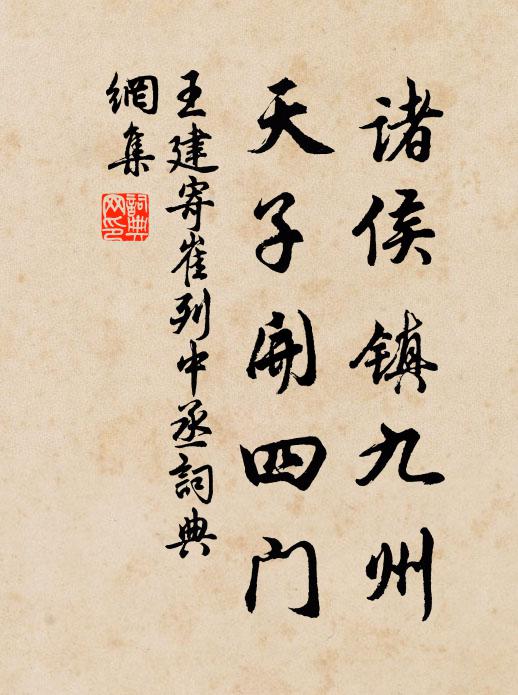 诸侯镇九州
天子开四门
王建寄崔列中丞詞典
網集
詞典
网印